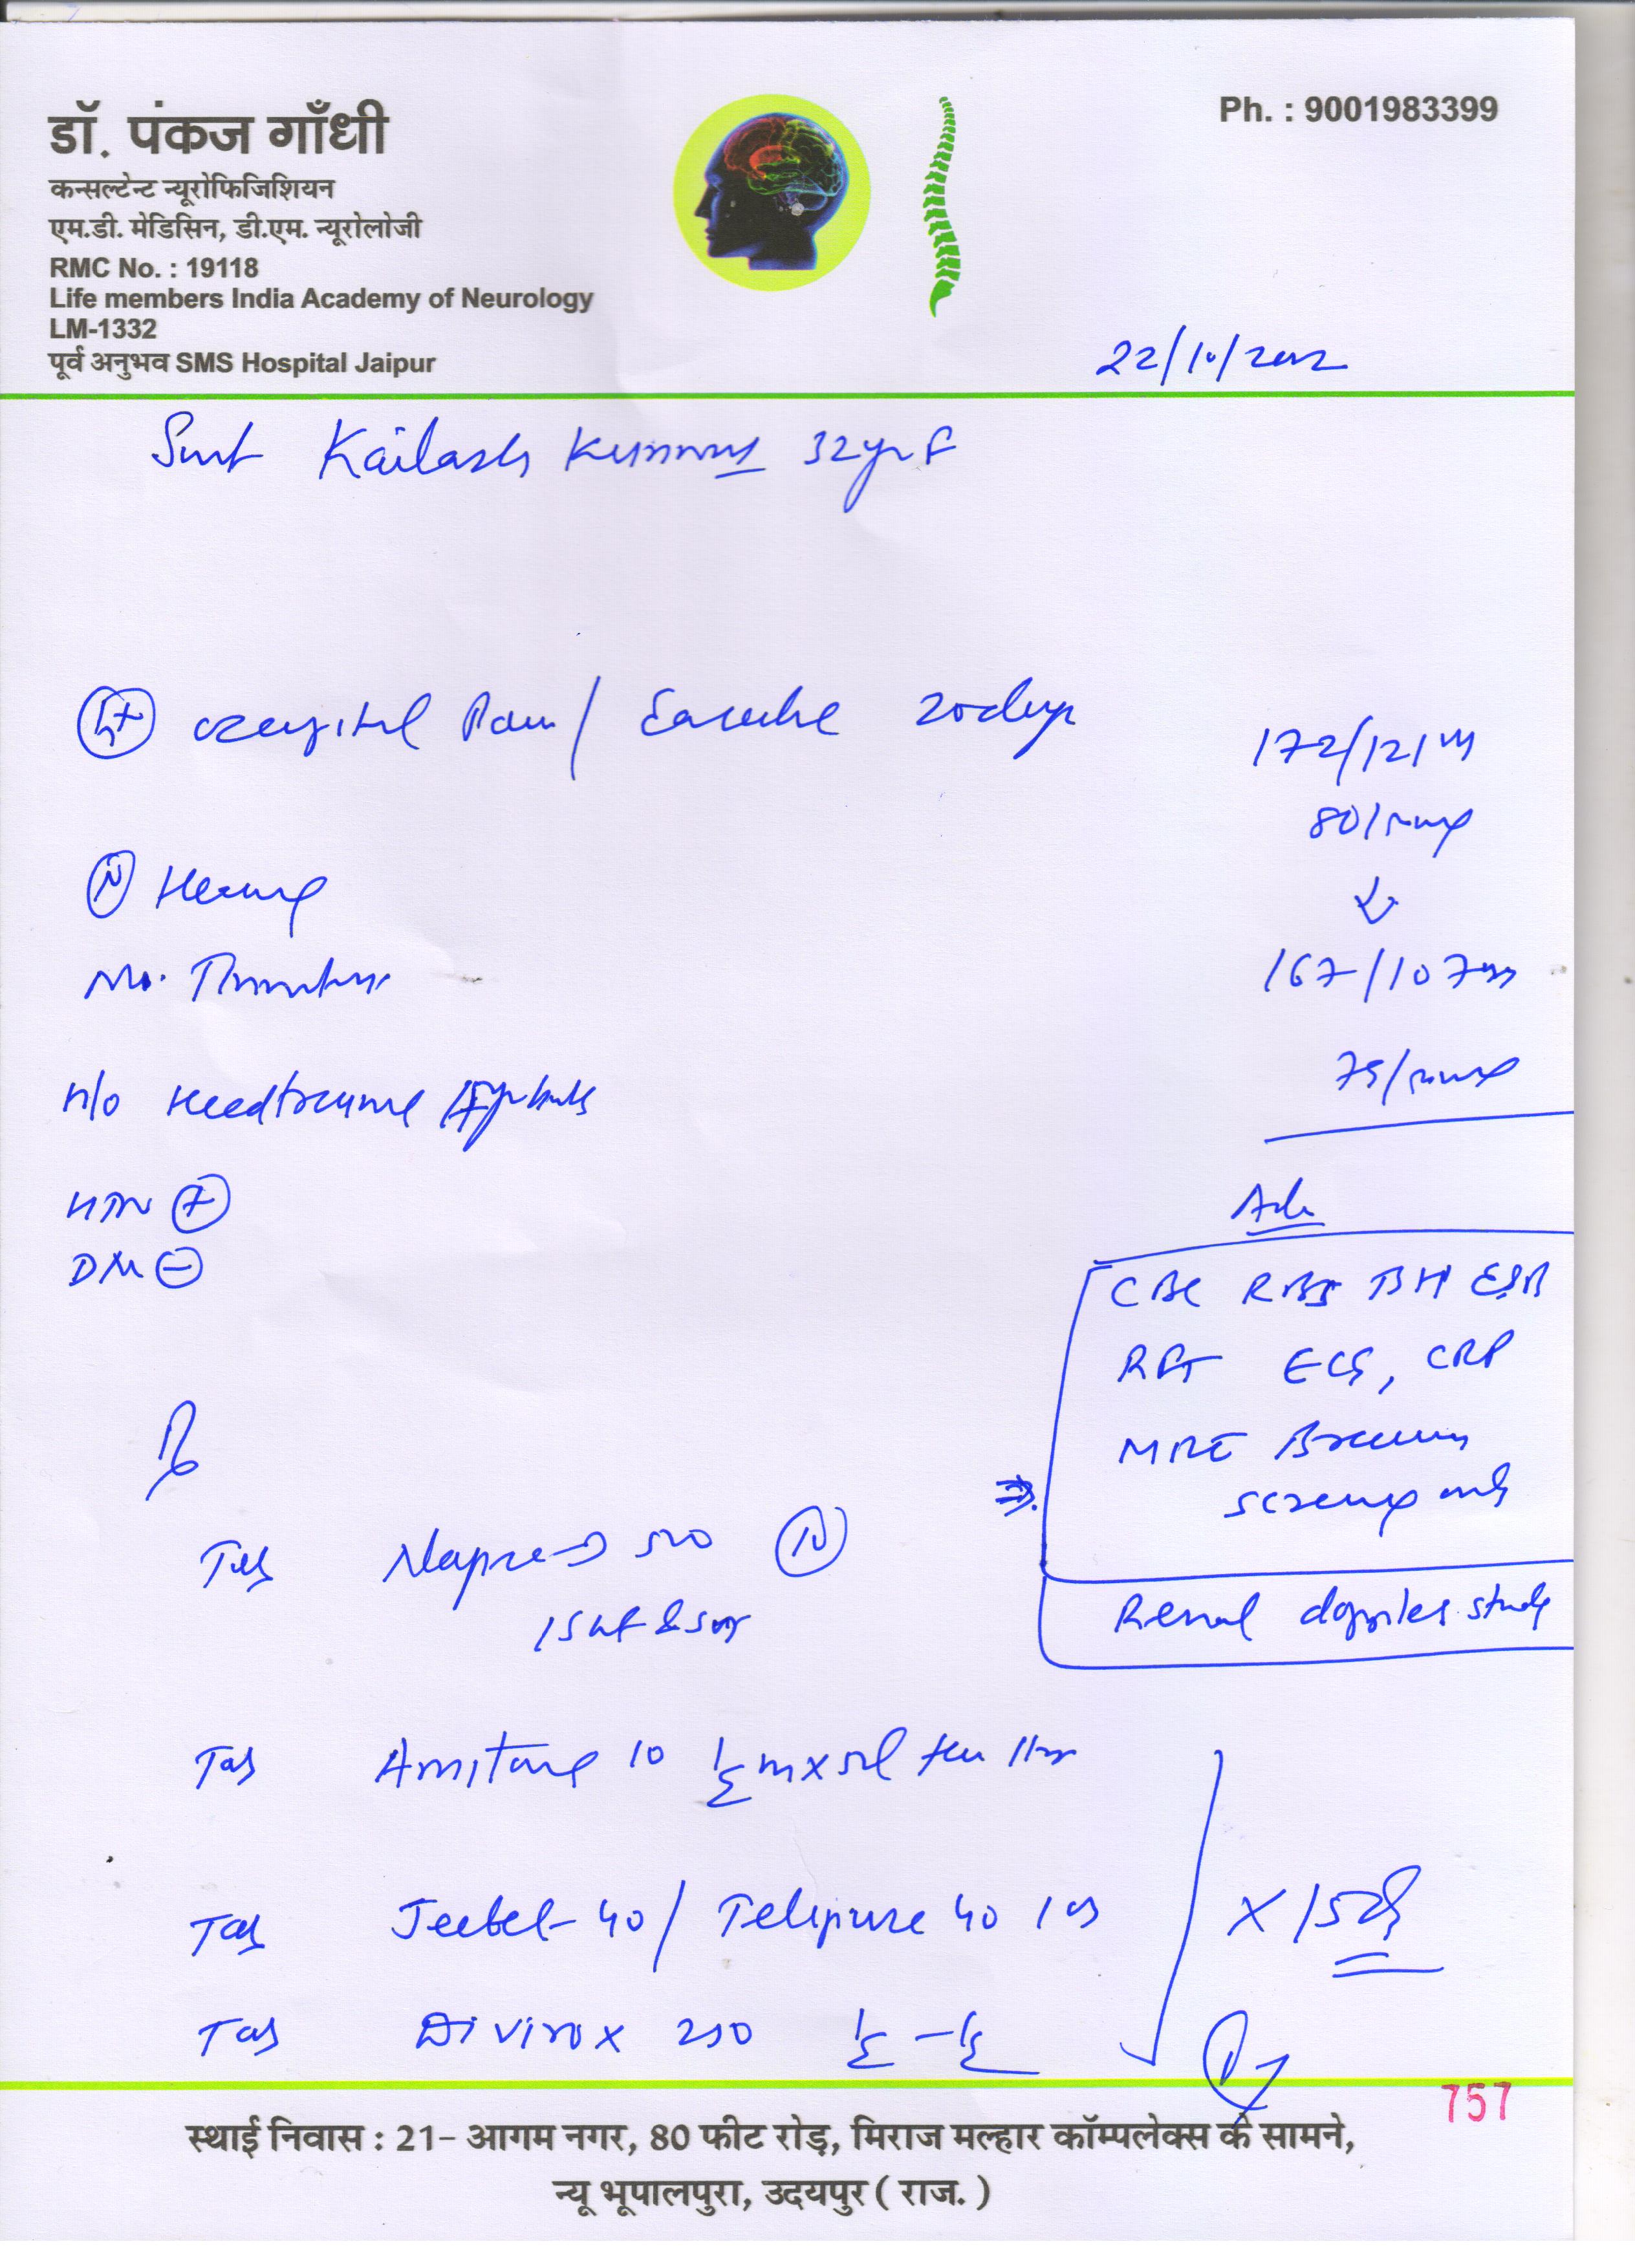 डॉ. पंकज गाँधी
कन्सल्टेन्ट न्यूरोफिजिशियन
एम.डी. मेडिसिन, डी.एम. न्यूरोलोजी
RMC No. : 19118
Life members India Academy of Neurology
LM-1332
पूर्व अनुभव SMS Hospital Jaipur
Ph. : 9001983399
22/10/2022
Smt Kailash Kunwar 32yr F
Lt occipital Pain / Earache 20days
N Hearing
No. Tinnitus
H/o Head trauma
HTN +
DM -
172/121
80/min
↓
167/107
75/min
Adv
CBC RBS ESR
RFT ECG, CRP
MRI Brain
screening only
Renal doppler study
Rx
Tab Naprex-D 500 N
1 SOS
Tab 10 ½
Tab 40 / Telipure 40 1 OD
Tab Divirox 250 ½ - ½
x 15d
757
स्थाई निवास : 21- आगम नगर, 80 फीट रोड़, मिराज मल्हार कॉम्पलेक्स के सामने,
न्यू भूपालपुरा, उदयपुर ( राज. )